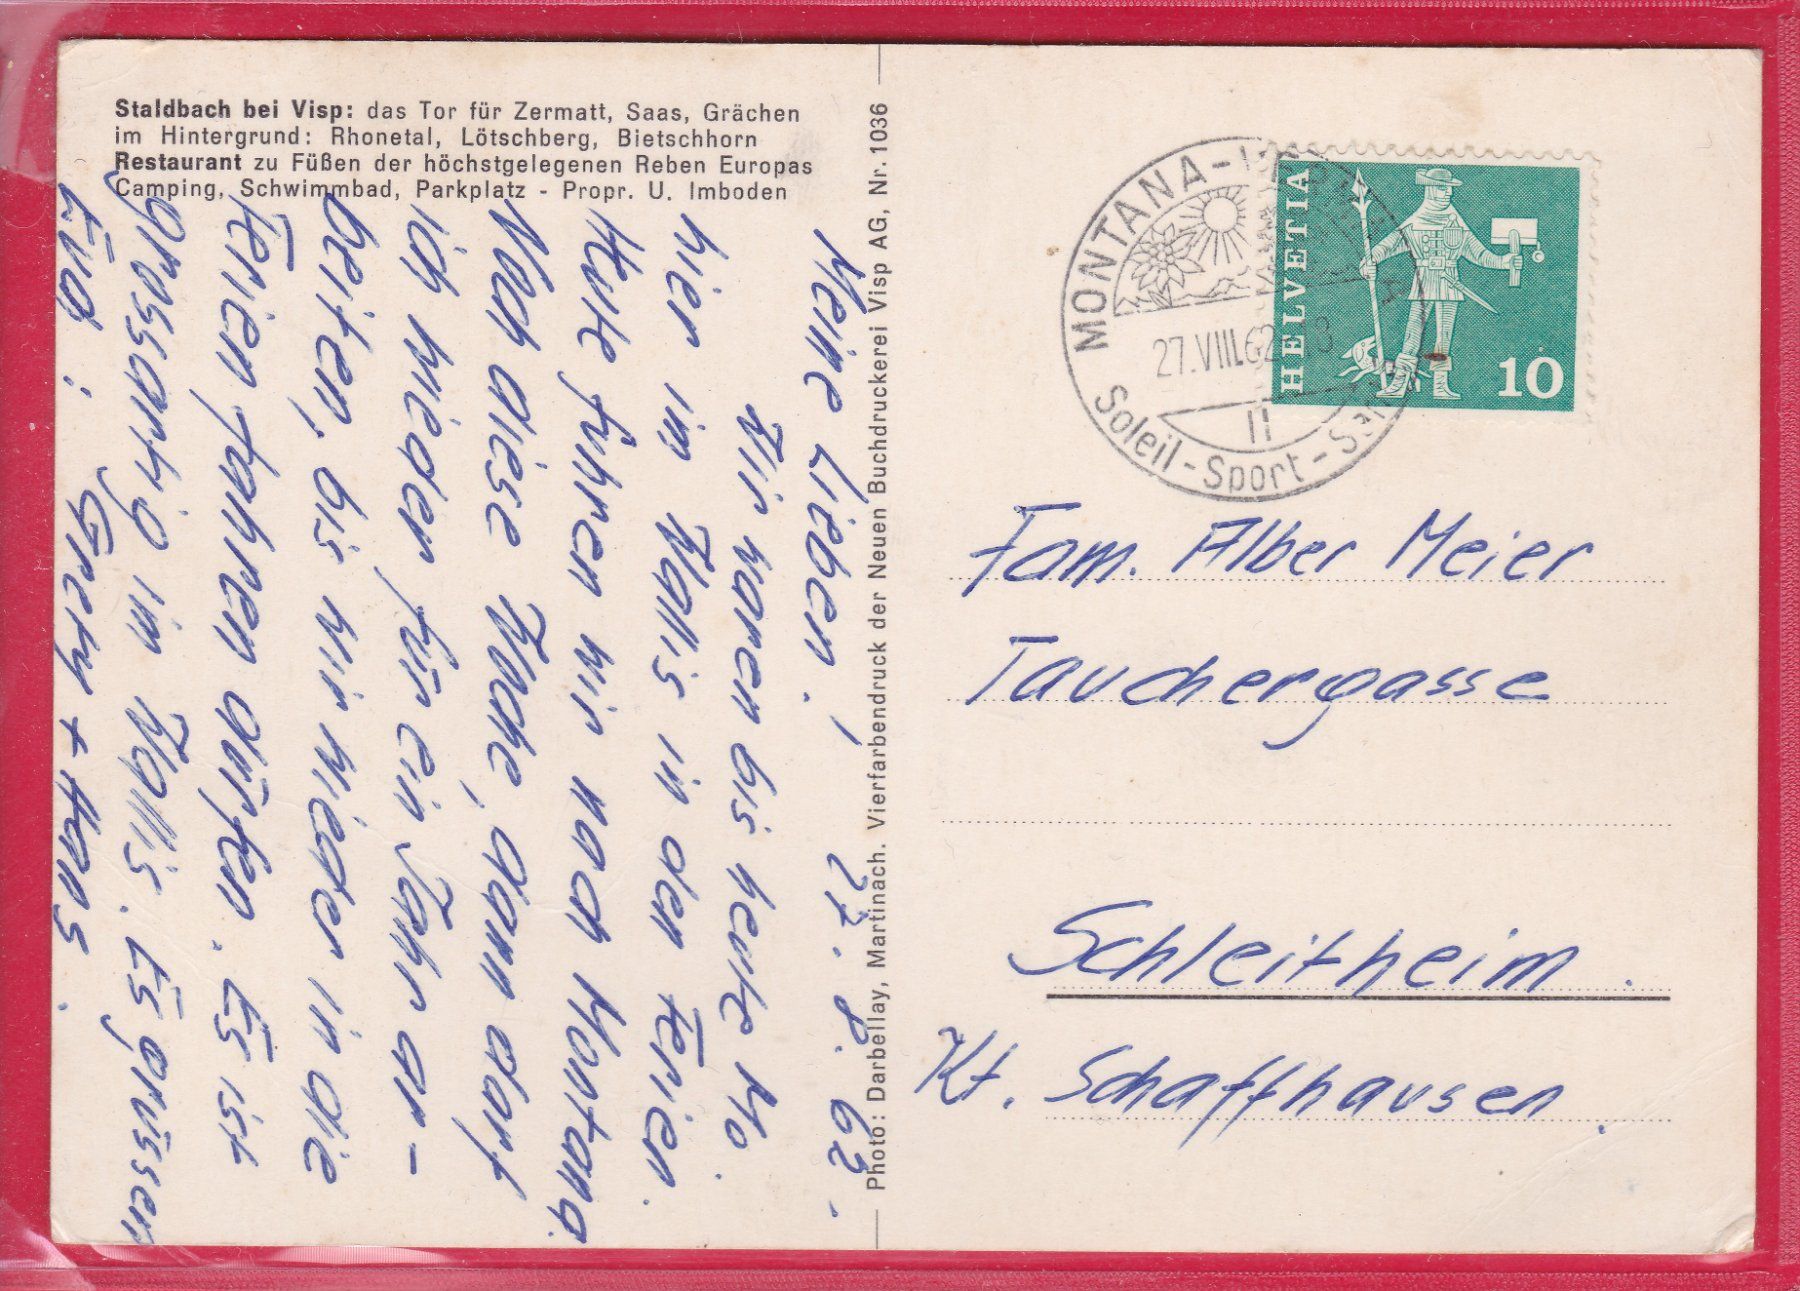 Staldbach bei Visp: das Tor für Zermatt, Saas, Grächen
im Hintergrund: Rhonetal, Lötschberg, Bietschhorn
Restaurant zu Füßen der höchstgelegenen Reben Europas
Camping, Schwimmbad, Parkplatz - Propr. U. Imboden
Meine Lieben! 27.8.62.
Wir waren bis heute Mo.
hier im Wallis in den Ferien.
Heute führen wir nach Montana.
Noch diese Woche, dann darf
ich wieder für ein Jahr ar-
beiten, bis wir wieder in die
Ferien fahren dürfen. Es ist
grossartig im Wallis. Es grüssen
Euch: Grety + Hans.
Photo: Darbellay, Martinach. Vierfarbendruck der Neuen Buchdruckerei Visp AG, Nr. 1036
MONTANA-
27.VIII.62-18
Soleil-Sport-
HELVETIA
10
Fam. Alber Meier
Tauchergasse
Schleitheim.
Kt. Schaffhausen.